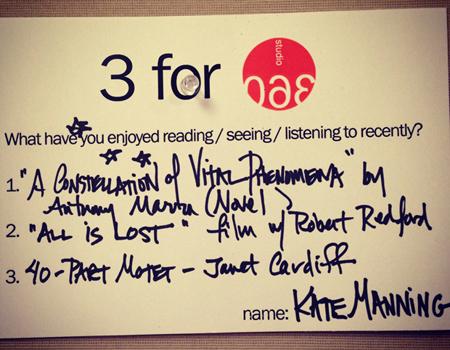 3 for studio 360
What have you enjoyed reading / seeing / listening to recently?
1. "A CONSTELLATION of VITAL PHENOMENA" by
Anthony Marra (Novel)
2. "ALL is LOST" film w/ Robert Redford
3. 40-PART MOTET - Janet Cardiff
name: KATE MANNING